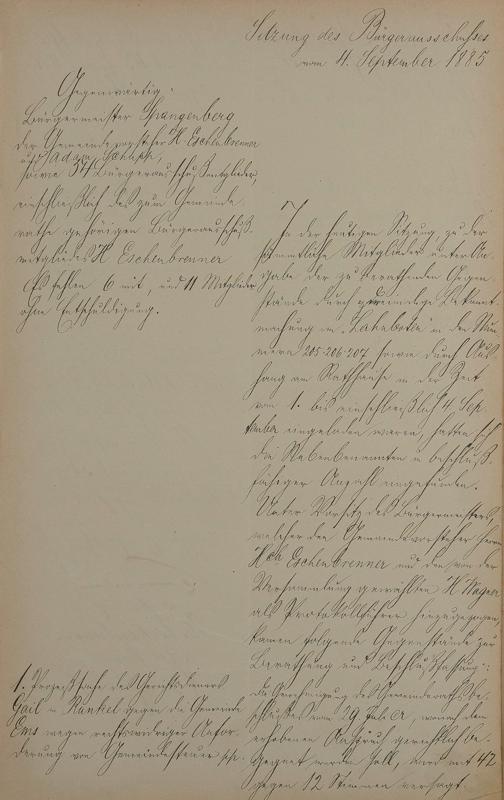 Sitzung des Bürgerausschusses
vom 4. September 1885
Gegenwärtig:
Bürgermeister Spangenberg
der Gemeindevorsteher H. Eschenbrenner
und Adam Schupp,
sowie 54 Bürgerausschußmitglieder,
einschließlich des zum Gemeinde
rathe gehörigen Bürgerausschuß-
mitgliedes H. Eschenbrenner
Es fehlen 6 mit, und 11 Mitglieder
ohne Entschuldigung.
In der heutigen Sitzung, zu der
sämmtliche Mitglieder unter An-
gabe der zu berathenden Gegen-
stände durch dreimalige Bekannt-
machung im "Lahnboten" in den Num
mern 205-206-207 sowie durch Aus
hang am Rathhause in der Zeit
vom 1. bis einschließlich 4. Sep-
tember eingeladen waren, hatten sich
die Nebenbenannten in beschluß-
fähiger Anzahl eingefunden.
Unter Vorsitz des Bürgermeisters,
welcher den Gemeindevorsteher Herrn
Hch Eschenbrenner und den von der
Versammlung gewählten H. Wagner
als Protokollführer hinzugezogen,
kamen folgende Gegenstände zur
Berathung und Beschlußfassung:
1. Prozeßsache des Gerichtsdieners
Gail in Runkel gegen die Gemeinde
Ems wegen rechtswidriger Anfor-
derung von Gemeindesteuer
Die Genehmigung des Gemeinderathsbe-
schlusses vom 29 Juli cr, wonach dem
erhobenen Anspruch gerichtlich be-
gegnet werden soll, wird mit 42
gegen 12 Stimmen versagt.